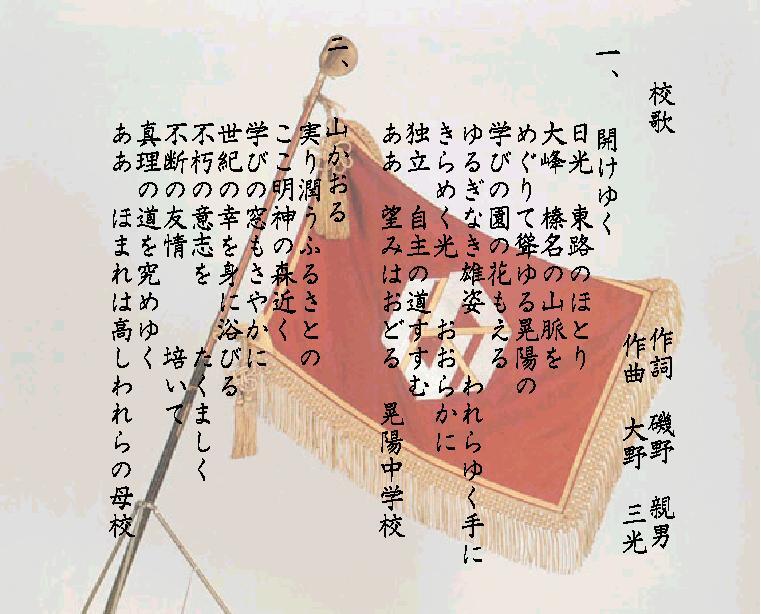 校歌
作詞 磯野 親男
作曲 大野 三光
一、 開けゆく
日光 東路のほとり
大峰 榛名の山脈を
めぐりて聳ゆる晃陽の
学びの園の花もえる
ゆるぎなき雄姿 われらゆく手に
きらめく光 おおらかに
独立 自主の道すすむ
ああ 望みはおどる 晃陽中学校
二、 山かおる
実り潤うふるさとの
ここ明神の森近く
学びの窓もさやかに
世紀の幸を身に浴びる
不朽の意志を たくましく
不断の友情 培いて
真理の道を究めゆく
ああ ほまれは高しわれらの母校